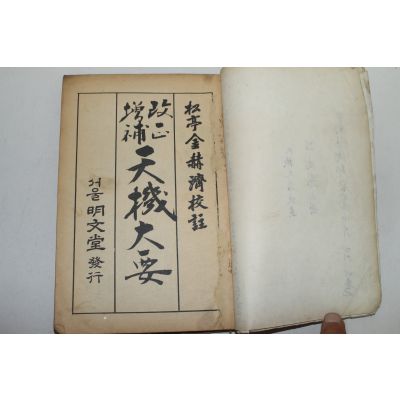 松亭金赫濟校註
改正
增補
天機大要
서울 明文堂 發行